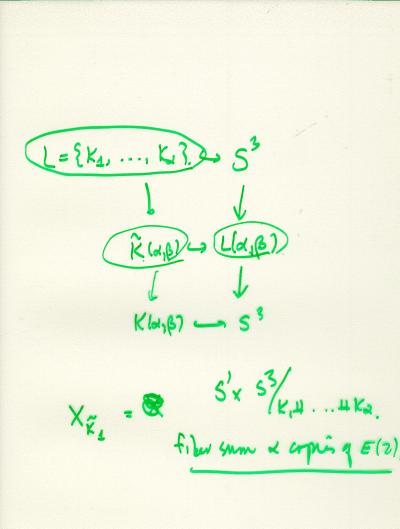 L = {K₁, ..., K₂} ↪ S³
↓ ↓
K̃(α,β) ↪ L(α,β)
↓ ↓
K(α,β) → S³
X_K̃₁ = S¹ × S³/K₁ # ... # K₂.
fiber sum α copies of E(2)